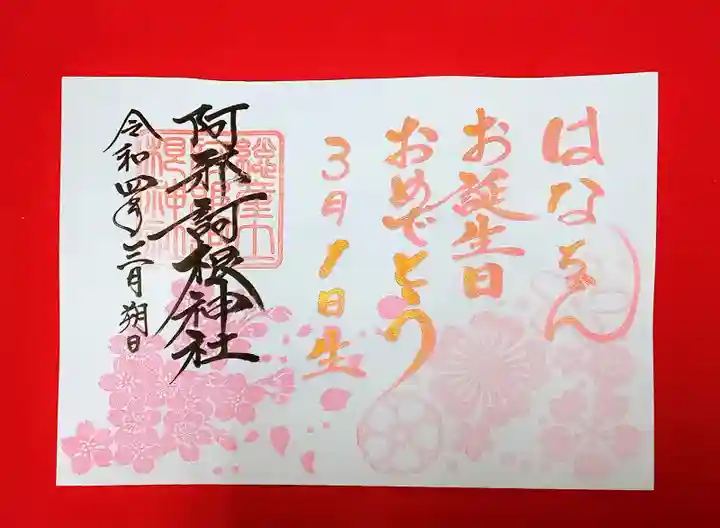 はなさん
お誕生日
おめでとう
3月1日生
阿邪訶根神社
令和四年三月朔日